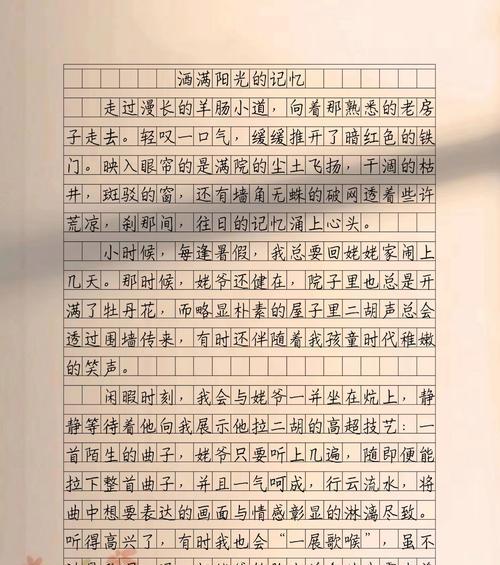 洒满阳光的记忆
走过漫长的羊肠小道，向着那熟悉的老房
子走去。轻叹一口气，缓缓推开了暗红色的铁
门。映入眼帘的是满院的尘土飞扬，干涸的枯
井，斑驳的窗，还有墙角无蛛的破网透着些许
荒凉，刹那间，往日的记忆涌上心头。
小时候，每逢暑假，我总要回姥姥家闹上
几天。那时候，姥爷还健在，院子里也总是开
满了牡丹花，而略显朴素的屋子里二胡声总会
透过围墙传来，有时还伴随着我孩童时代稚嫩
的笑声。
闲暇时刻，我会与姥爷一并坐在炕上，静
静等待着他向我展示他拉二胡的高超技艺：一
首陌生的曲子，姥爷只要听上几遍，随即便能
拉下整首曲子，并且一气呵成，行云流水，将
曲中想要表达的画面与情感彰显的淋漓尽致。
听得高兴了，有时我也会“一展歌喉”，虽不